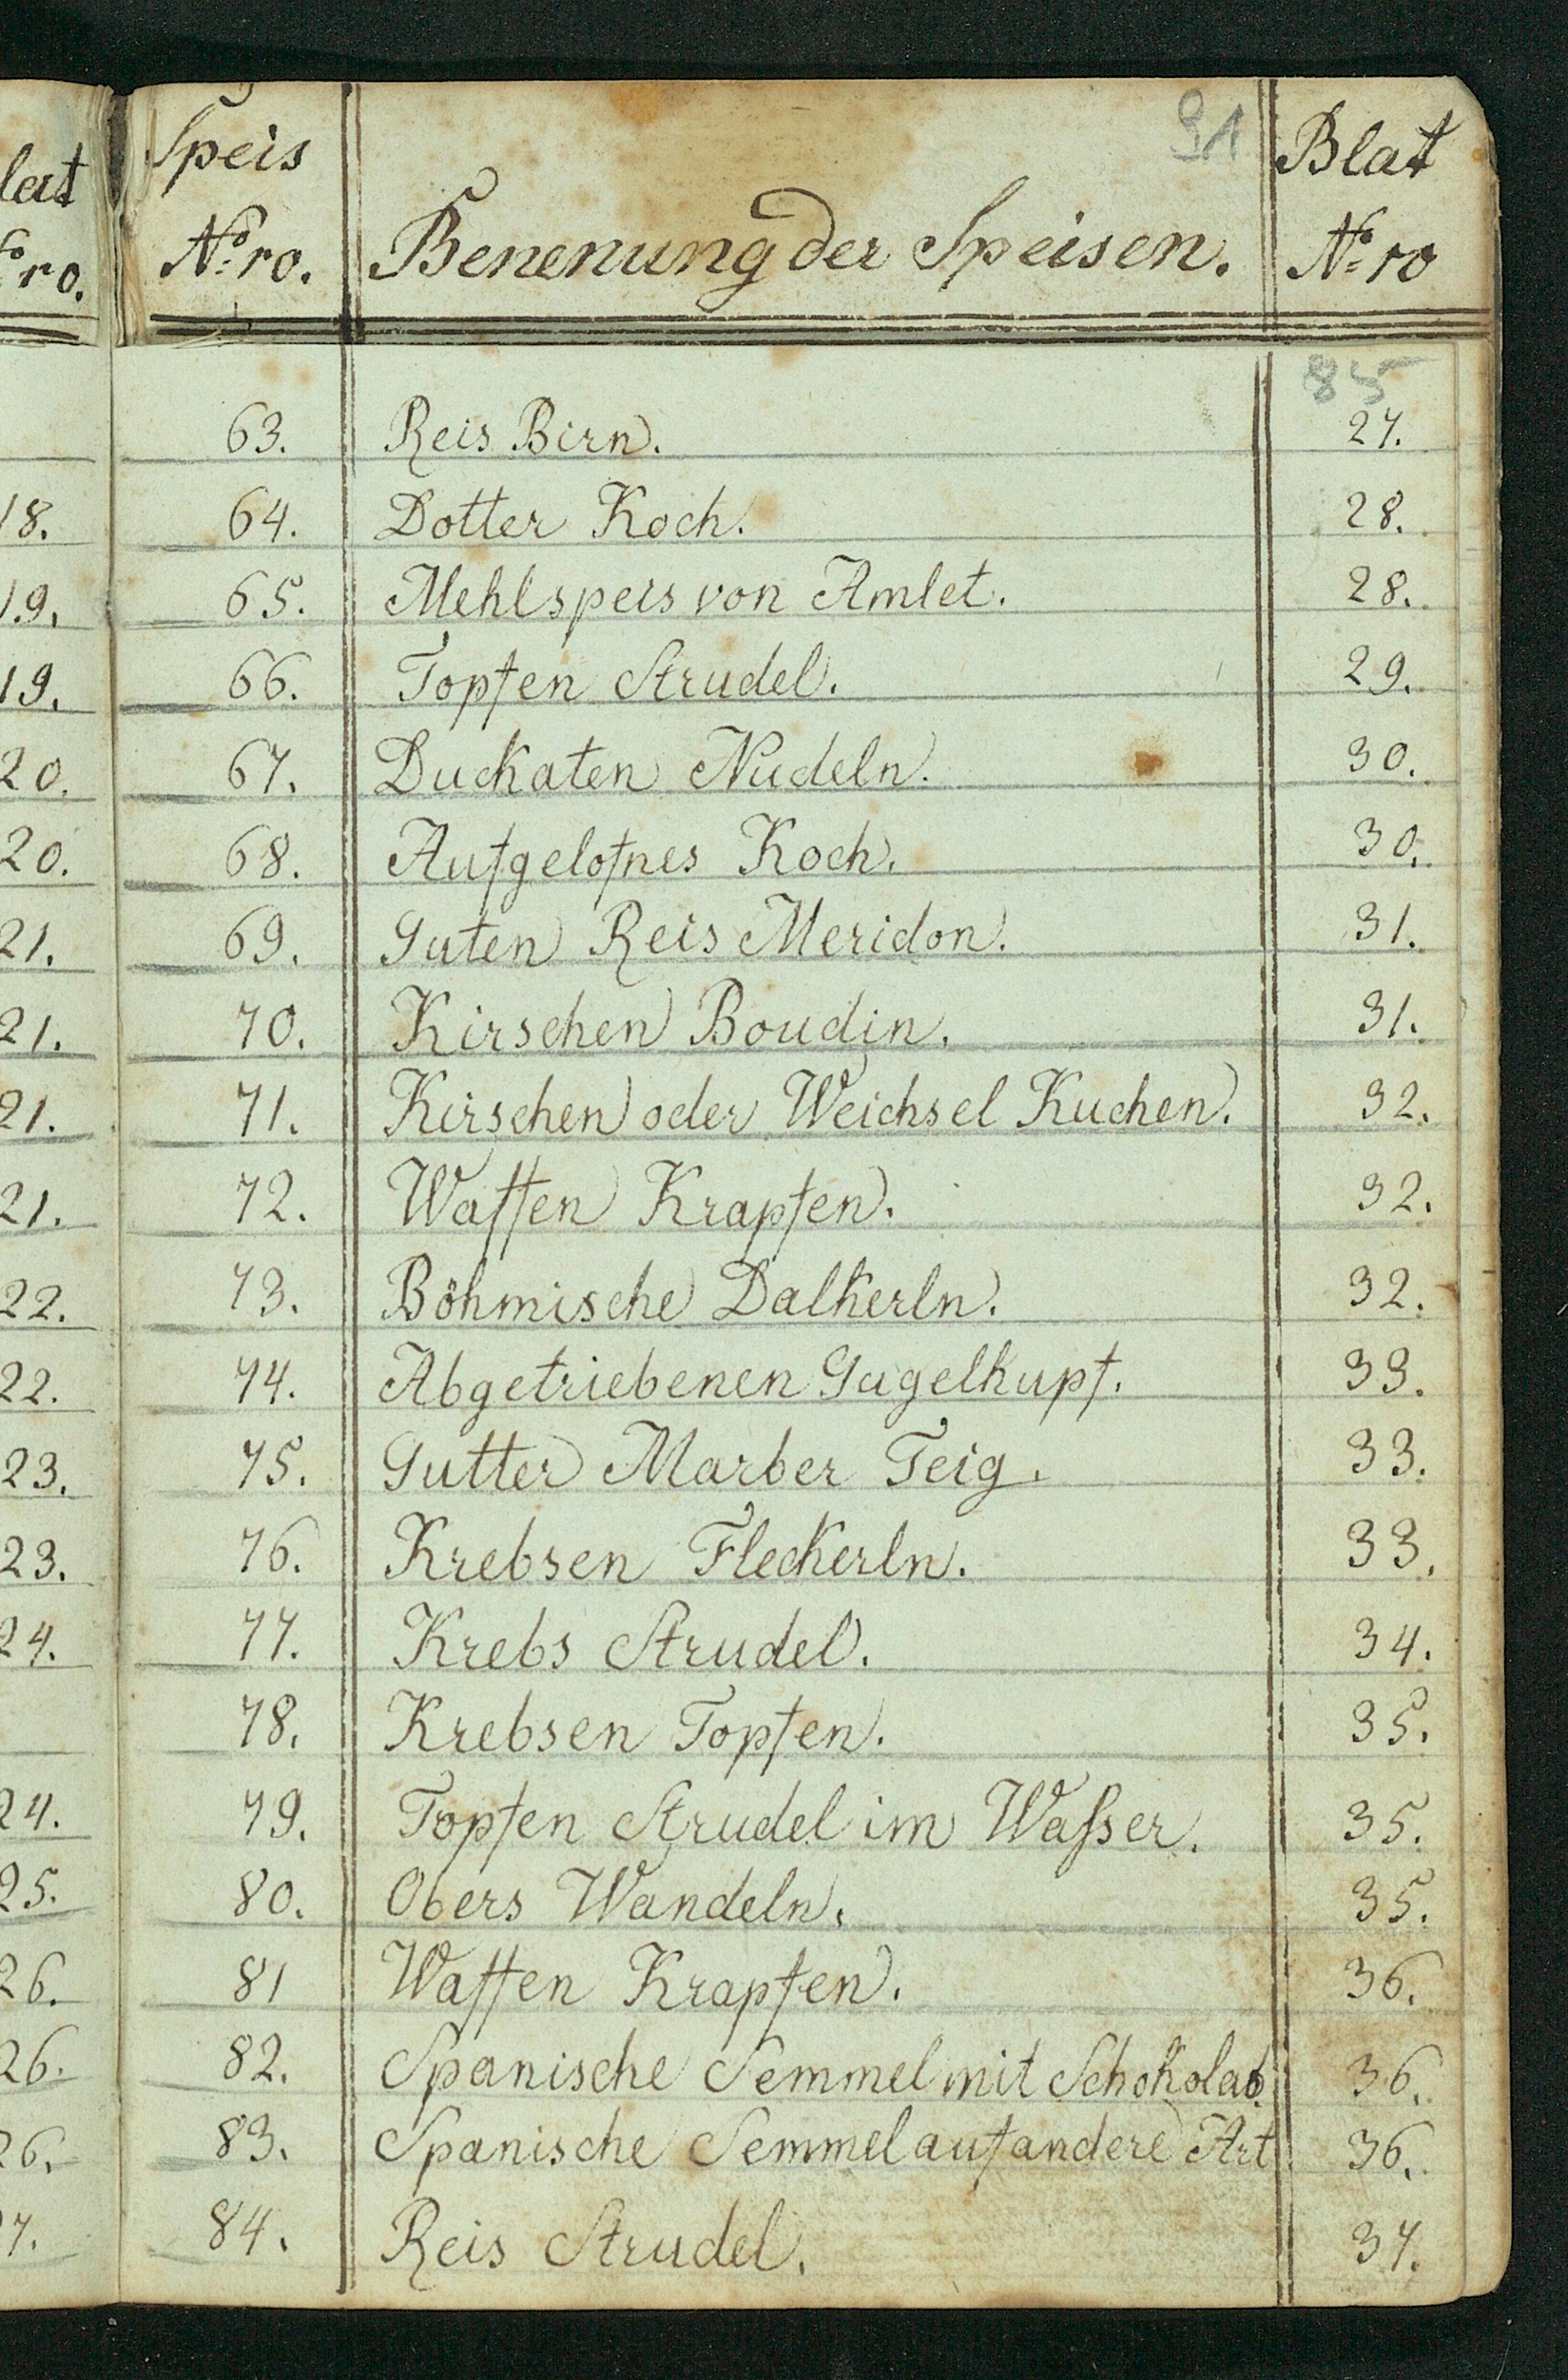 91
Speis Blat
Nº:ro. Benenung der Speisen. Nº:ro
85
63. Reis Birn. 27.
64. Dotter Koch. 28.
65. Mehlspeis von Amlet. 28.
66. Topfen Strudel. 29.
67. Duckaten Nudeln. 30.
68. Aufgelofnes Koch. 30.
69. Guten Reis Meridon. 31.
70. Kirschen Boudin. 31.
71. Kirschen oder Weichsel Kuchen. 32.
72. Waffen Krapfen. 32.
73. Böhmische Dalkerln. 32.
74. Abgetriebenen Gugelkupf. 33.
75. Gutter Marber Teig. 33.
76. Krebsen Fleckerln. 33.
77. Krebs Strudel. 34.
78. Krebsen Topfen. 35.
79. Topfen Strudel im Waſser. 35.
80. Obers Wandeln. 35.
81 Waffen Krapfen. 36.
82. Spanische Semmel mit Schokolad. 36.
83. Spanische Semmel auf andere Art 36.
84. Reis Strudel. 37.
lat
ro.
18.
19.
19.
20.
20.
21.
21.
21.
21.
22.
22.
23.
23.
24.
24.
25.
26.
26.
26.
7.